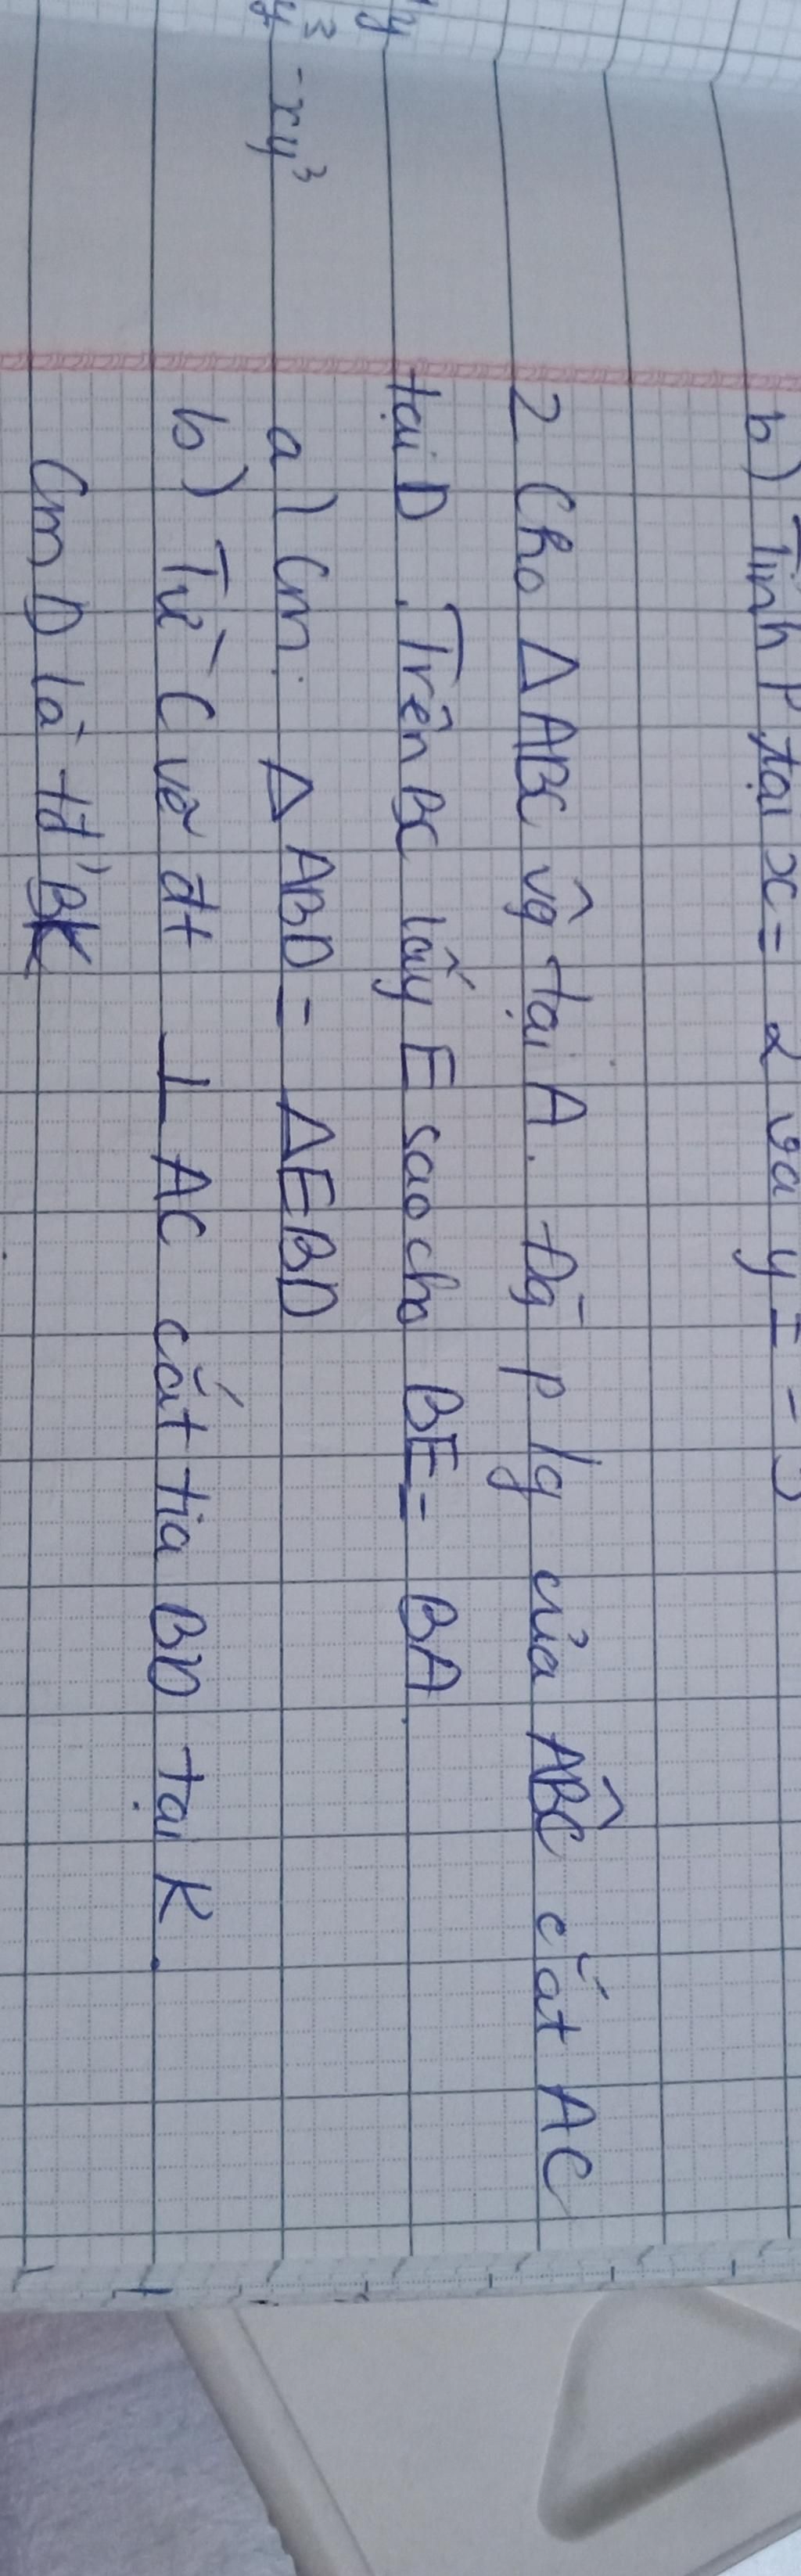 b) Tính P tại x = 2 và y = -
2 Cho △ ABC vg tại A. Đg p/g của ABC cắt AC
tại D. Trên BC lấy E sao cho BE = BA.
a) Cm: △ ABD = △ EBD
b) Từ C vẽ đt ⊥ AC cắt tia BD tại K.
Cm D là tđ BK
-xy³